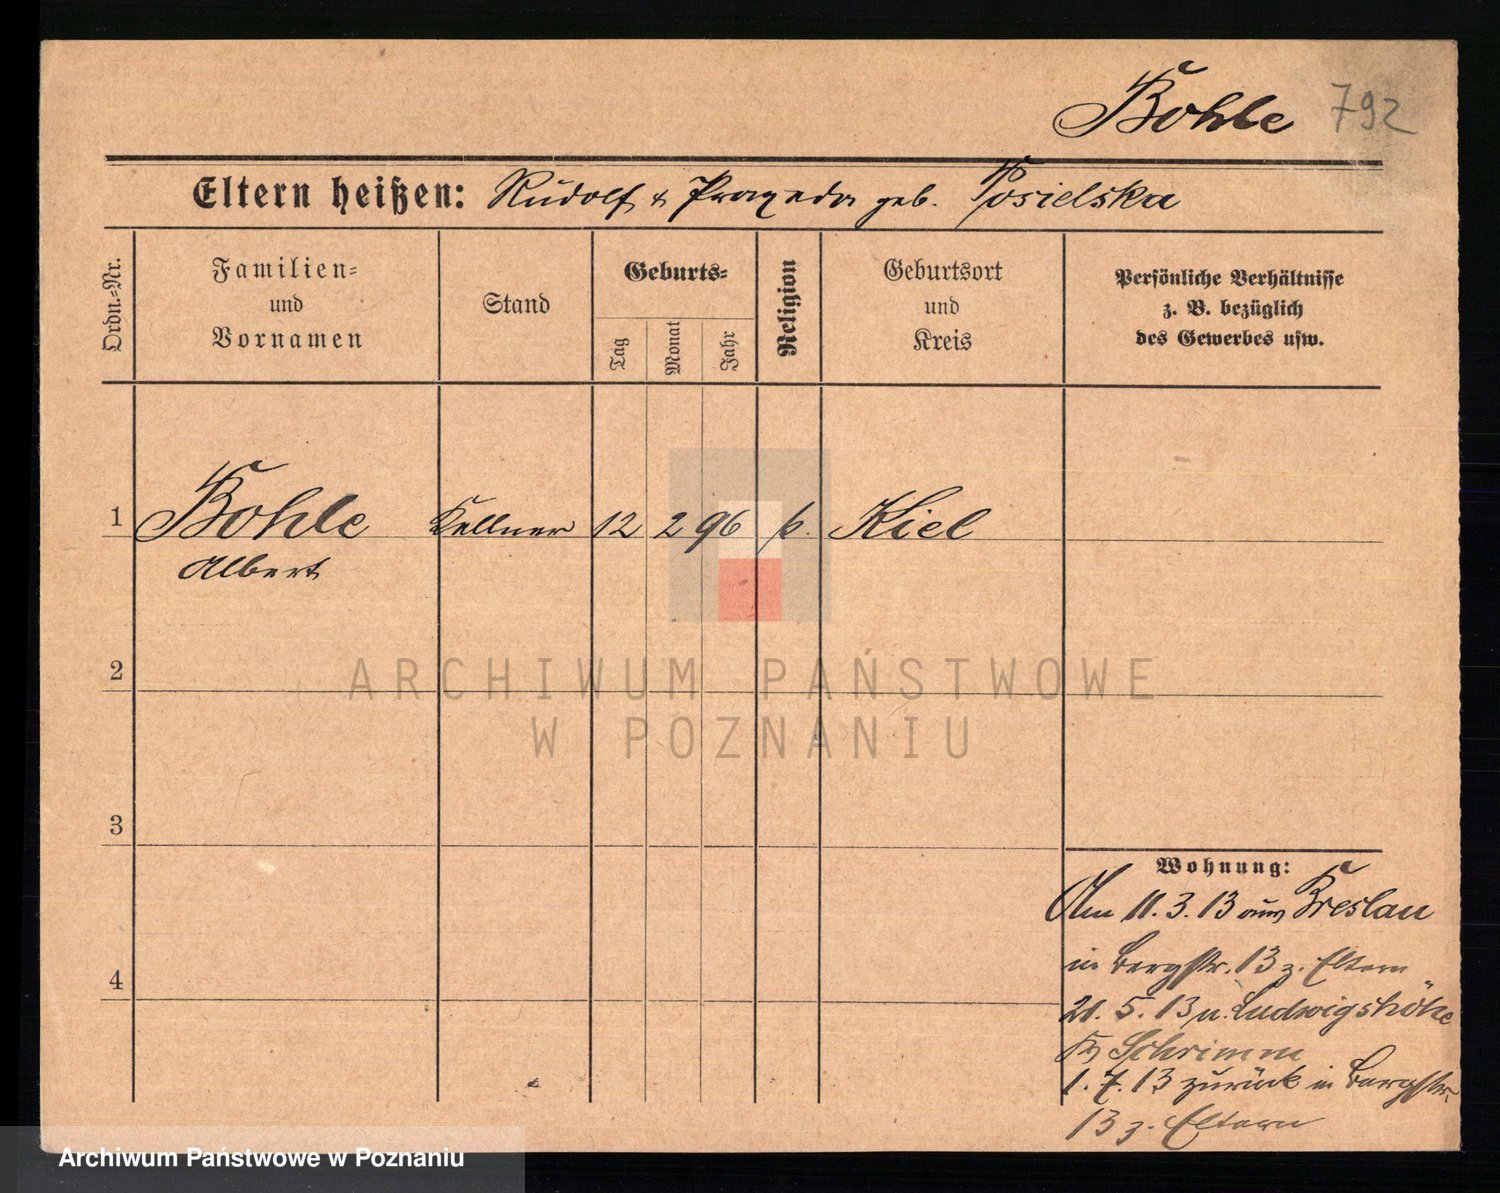 Bohle 792
Eltern heißen: Rudolf & Praxeda geb. Posielska
Ordn.=Nr.
Familien=
und
Vornamen
Stand
Geburts=
Tag
Monat
Jahr
Religion
Geburtsort
und
Kreis
Persönliche Verhältnisse
z. B. bezüglich
des Gewerbes usw.
1 Bohle Kellner 12 2 96 k. Kiel
Albert
2
3
4
Wohnung:
Am 11.3.13 aus Breslau
in Bergstr. 13 z. Eltern
21.5.13 n. Ludwigshöhe
Kr Schrimm
1.7.13 zurück in Bergstr.
13 z. Eltern
ARCHIWUM PAŃSTWOWE
W POZNANIU
Archiwum Państwowe w Poznaniu